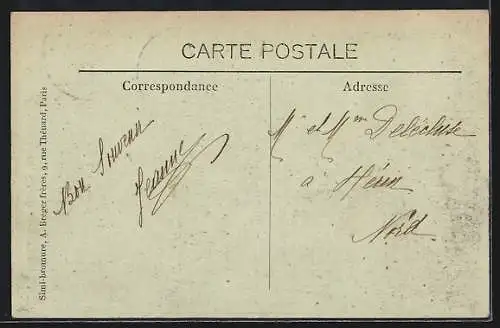 CARTE POSTALE
Correspondance
Adresse
Bon Souvenir
Jeanne
Mr et Mme Delécluse
à Hérin
Nord
Simi-bromure, A. Breger frères, 9, rue Thénard, Paris